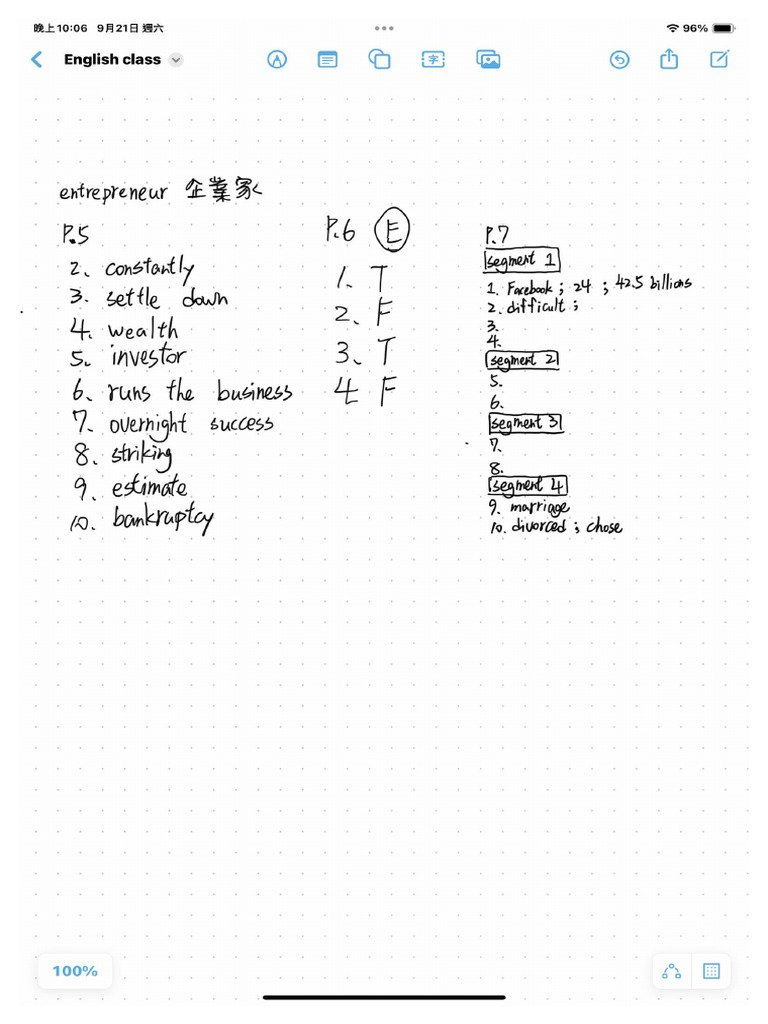 晚上10:06 9月21日 週六
96%
English class
字
entrepreneur 企業家
P.5
2. constantly
3. settle down
4. wealth
5. investor
6. runs the business
7. overnight success
8. striking
9. estimate
10. bankruptcy
P.6 E
1. T
2. F
3. T
4 F
P.7
segment 1
1. Facebook ; 24 ; 42.5 billions
2. difficult ;
3.
4.
segment 2
5.
6.
segment 3
7.
8.
segment 4
9. marriage
10. divorced ; chose
100%